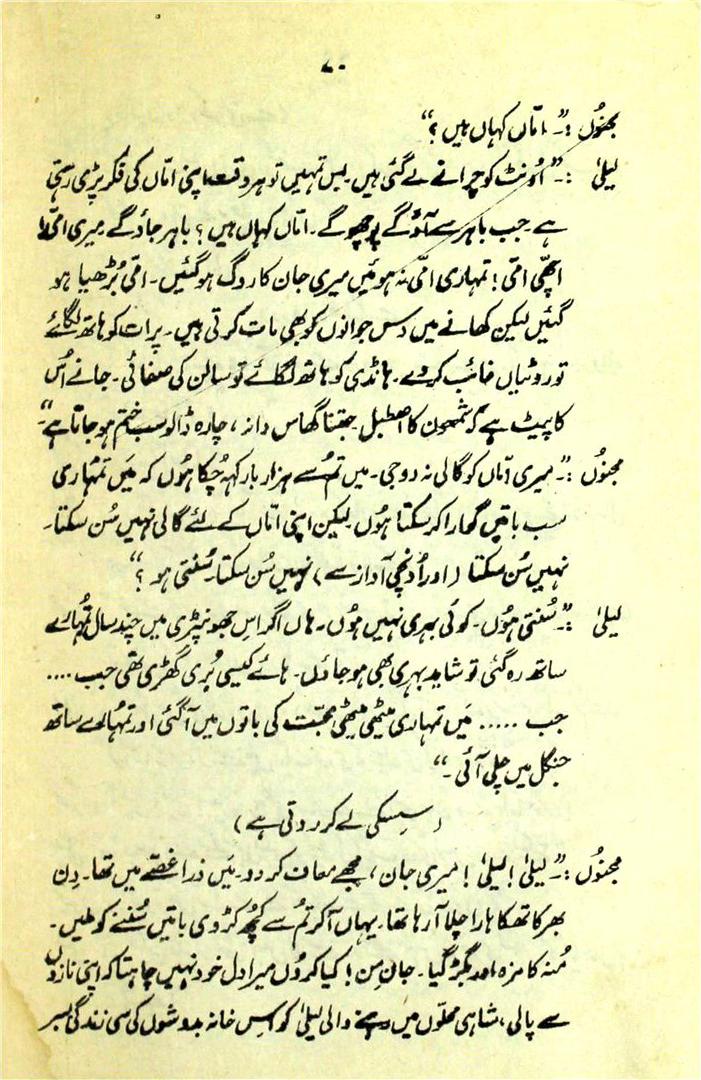 ۷۰
مجنُوں :۔" امّاں کہاں ہیں ؟"
لیلیٰ :۔" اُونٹ کو چرانے لے گئی ہیں۔ بس تمہیں تو ہر وقت اپنی امّاں کی فکر پڑی رہتی
ہے۔ جب باہر سے آؤ گے پوچھو گے۔ امّاں کہاں ہیں ؟ باہر جاؤ گے میری امّی!
اچھّی امّی ! تمہاری امّی نہ ہوئیں میری جان کا روگ ہو گئیں۔ امّی بُڑھیا ہو
گئیں لیکن کھانے میں دس جوانوں کو بھی مات کرتی ہیں۔ پرات کو ہاتھ لگائے
تو روٹیاں غائب کر دے۔ ہانڈی کو ہاتھ لگائے تو سالن کی صفائی۔ جانے اُس
کا پیٹ ہے کہ شمعون کا اصطبل۔ جتنا گھاس دانہ ، چارہ ڈالو سب ختم ہو جاتا ہے"
مجنُوں :۔ میری امّاں کو گالی نہ دو جی۔ میں تُم سے ہزار بار کہہ چُکا ہُوں کہ مَیں تمہاری
سب باتیں گوارا کر سکتا ہُوں۔ لیکن اپنی امّاں کے لئے گالی نہیں سُن سکتا۔
نہیں سُن سکتا (اور اُونچی آواز سے) نہیں سُن سکتا۔ سُنتی ہو ؟"
لیلیٰ :۔" سُنتی ہُوں۔ کوئی بہری نہیں ہُوں۔ ہاں اگر اِس جھونپڑی میں چند سال تُمہارے
ساتھ رہ گئی تو شاید بہری بھی ہو جاؤں۔ ہائے کیسی بُری گھڑی تھی جب ....
جب ..... مَیں تمہاری میٹھی میٹھی محبّت کی باتوں میں آ گئی اور تمہارے ساتھ
جنگل میں چلی آئی۔"
(سسکی لے کر روتی ہے)
مجنُوں :۔" لیلیٰ ! لیلیٰ ! میری جان ، مجھے معاف کر دو۔ مَیں ذرا غصّے میں تھا۔ دِن
بھر کا تھکا ہارا چلا آ رہا تھا۔ یہاں آ کر تُم سے کُچھ کڑوی باتیں سُننے کو ملیں۔
مُنہ کا مزہ اور بگڑ گیا۔ جانِ من ! کیا کروں میرا دل خود نہیں چاہتا کہ اپنی نازوں
سے پالی ، شاہی محلّوں میں رہنے والی لیلیٰ کو اِس خانہ بدوشوں کی سی زندگی بسر